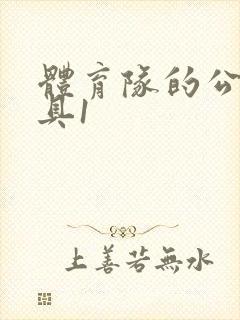 體育隊的公
具1
上善若無水